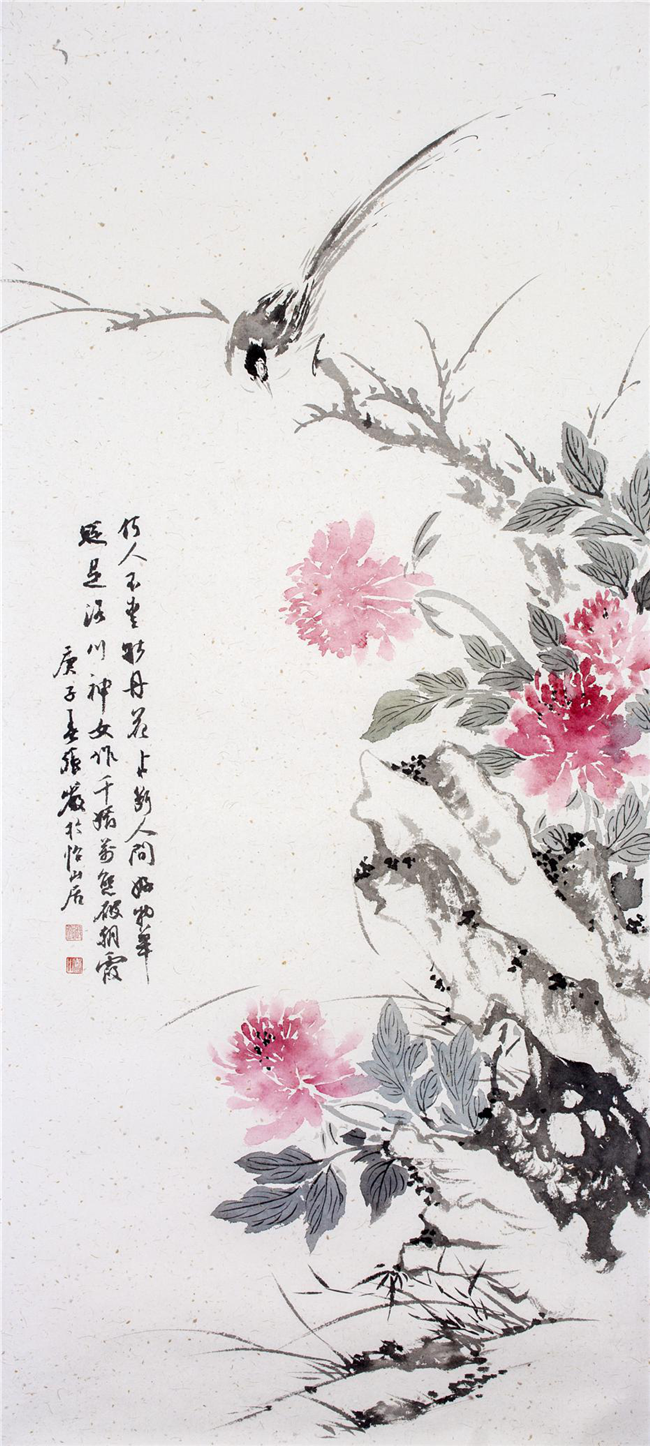 何人不爱牡丹花占断人间好物華
疑是洛川神女作千娇萬態破朝霞
庚子春張於怡山居